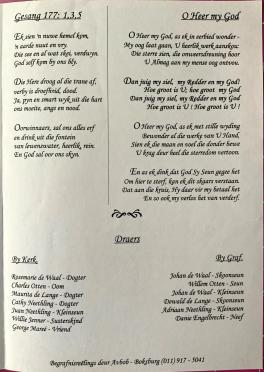 Gesang 177: 1,3,5
Ek sien 'n nuwe hemel kom,
'n aarde nuut en vry.
Die see en al wat skei, verdwyn.
God self kom by ons bly.
Die Here droog al die trane af,
verby is droefheid, dood.
Ja, pyn en smart wyk uit die hart
ons moeite, angs en nood.
Oorwinnaars, sal ons alles erf
en drink uit die fontein
van lewenswater, heerlik, rein.
En God sal oor ons skyn.
O Heer my God
O Heer my God, as ek in eerbied wonder -
My oog laat gaan, U heerlik werk aanskou:
Die sterre sien, die onweersdreuning hoor
U Almag aan my mense oog ontvou.
Dan juig my siel, my Redder en my God!
Hoe groot is U; hoe groot my God
Dan juig my siel, my Redder en my God
Hoe groot is U ! Hoe groot is U !
O Heer my God, as ek met stille wyding
Bewonder al die werke van U Hand.
Sien ek die maan en voel die donder bewe
U krag deur heel die sterredom vertoon.
En as ek dink dat God Sy Seun gegee het
Om hier te sterf, kan ek dit skaars verstaan.
Dat aan die kruis, Hy daar vir my betaal het
En so ook my verlos het van verderf.
Draers
By Kerk
Rosemarie de Waal - Dogter
Charles Otten - Oom
Maurita de Lange - Dogter
Cathy Neethling - Dogter
Ivan Neethling - Kleinseun
Willie Jenner - Susterskind
George Mareé - Vriend
By Graf
Johan de Waal - Skoonseun
Willem Otten - Seun
Johan de Waal - Kleinseun
Dewald de Lange - Skoonseun
Adriaan Neethling - Kleinseun
Danie Engelbrecht - Neef
Begrafnisreëlings deur Avbob - Boksburg (011) 917 - 5041